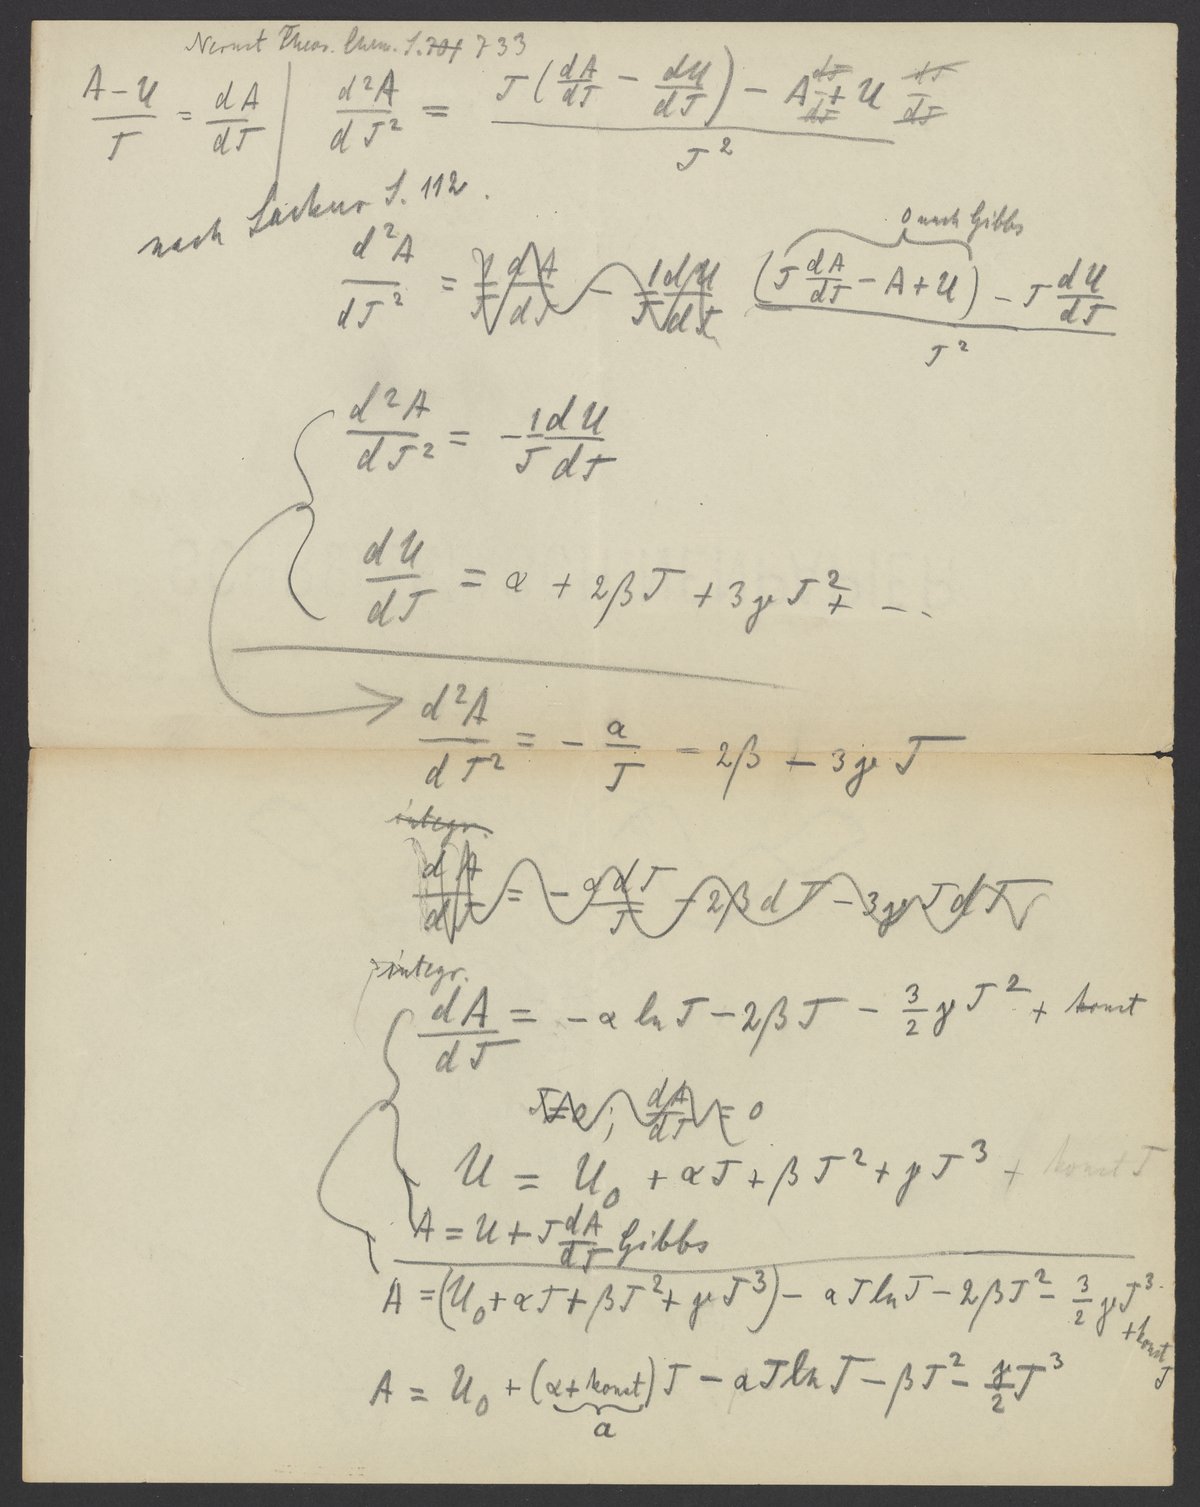 Nernst Theor. Chem. S. 701 733
(A – U)/T = dA/dT | d²A/dT² = (T (dA/dT – dU/dT) – A dT/dT + U dT/dT)/T²
nach Sackur S. 112.
0 nach Gibbs
d²A/dT² = 1/T dA/dT – 1/T dU/dT ((T dA/dT – A + U) – T dU/dT)/T²
d²A/dT² = – 1/T dU/dT
dU/dT = α + 2βT + 3γT² + – ..
d²A/dT² = – α/T – 2β – 3γT
integr.
dA/dT = – α dT/T – 2β dT – 3γT dT
integr.
dA/dT = – α ln T – 2βT – 3/2 γT² + konst
T=0; dA/dT = 0
U = U₀ + αT + βT² + γT³ + konst T
A = U + T dA/dT Gibbs
A = (U₀ + αT + βT² + γT³) – αT ln T – 2βT² – 3/2 γT³ + konst T
A = U₀ + (α + konst) T – αT ln T – βT² – γ/2 T³
a